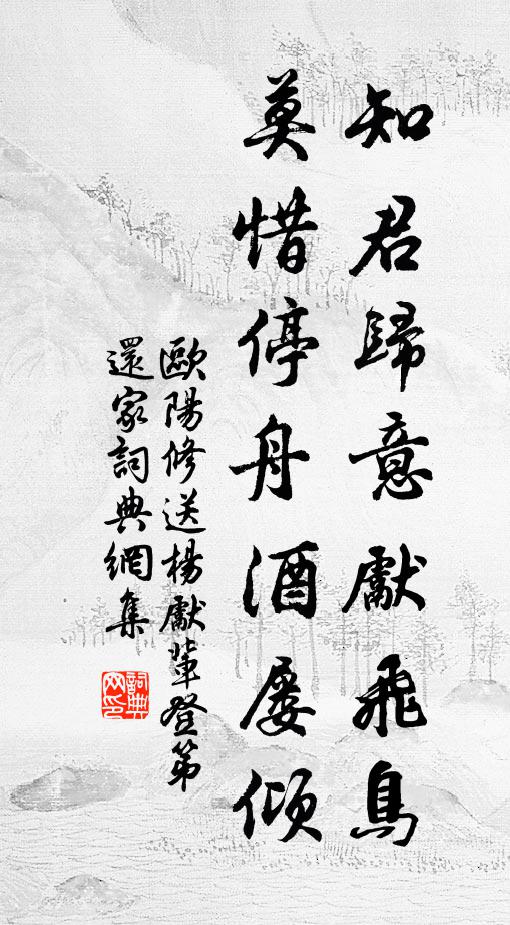 知君歸意獻飛鳥
莫惜停舟酒屡傾
歐陽修送楊獻輩登第
還家詞典網集
詞典
网印